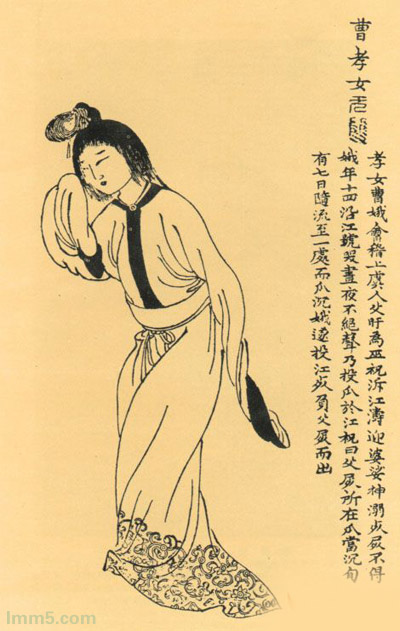 曹孝女
孝女曹娥會稽上虞人父盱為巫祝泝江濤迎婆娑神溺死屍不得
娥年十四沿江號哭晝夜不絕聲乃投瓜於江祝曰父屍所在瓜當沉旬
有七日隨流至一處而瓜沉娥遂投江死負父屍而出
lmm5.com